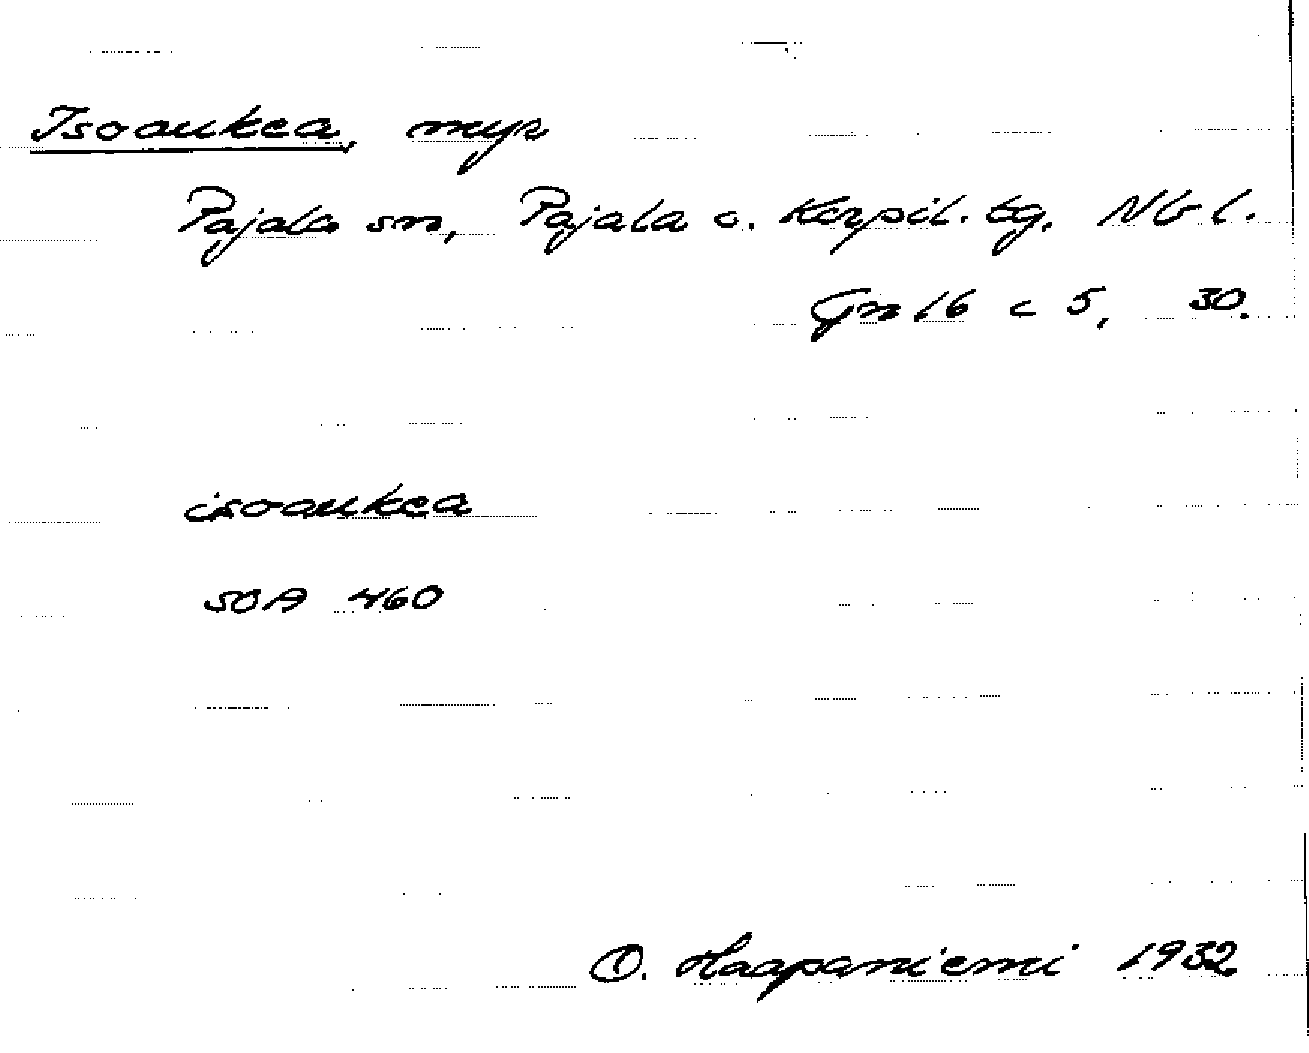 Isoaukea, myr
Pajala sn, Pajala s. Korpil. tg. Nb l.
Gn 16 c 5, 30.
isoaukea
SOA 460
O. Haapaniemi 1932